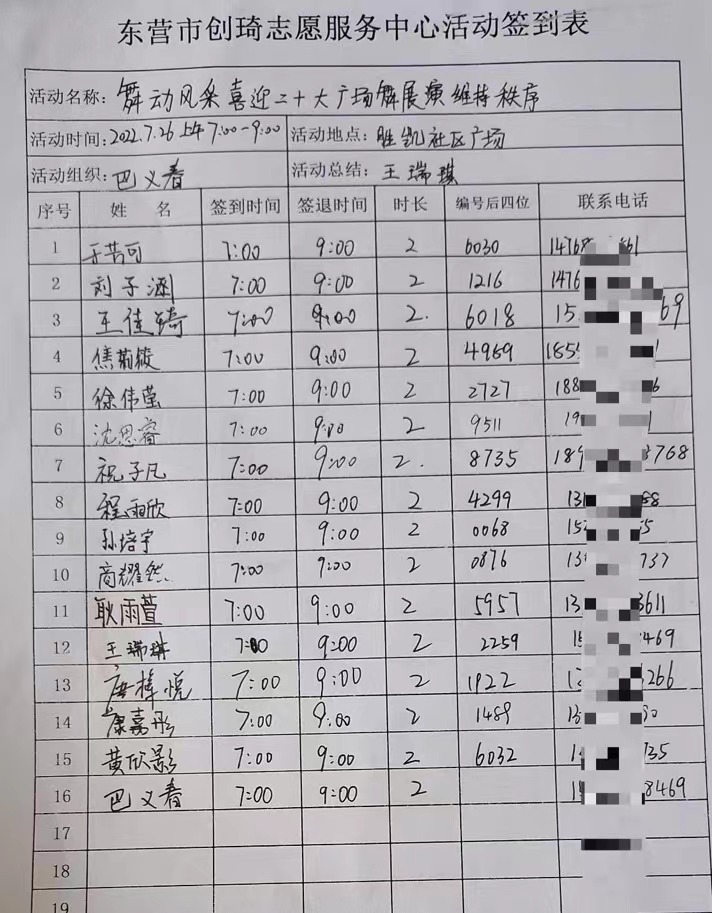 东营市创琦志愿服务中心活动签到表
活动名称: 舞动风采喜迎二十大广场舞展演维持秩序
活动时间: 2022.7.26 上午 7:00-9:00 活动地点: 胜凯社区广场
活动组织: 巴义春 活动总结: 王瑞琪
序号 姓 名 签到时间 签退时间 时长 编号后四位 联系电话
1 7:00 9:00 2 6030 1476
2 刘子涵 7:00 9:00 2 1216 1476
3 王佳琦 7:00 9:00 2. 6018 15 69
4 焦 7:00 9:00 2 4969 185 1
5 徐伟莹 7:00 9:00 2 2727 188 6
6 沈思睿 7:00 9:00 2 9511 19 1
7 祝子凡 7:00 9:00 2. 8735 189 3768
8 程雨欣 7:00 9:00 2 4299 13 88
9 孙培宇 7:00 9:00 2 0068 15 5
10 商耀然 7:00 9:00 2 0876 13 737
11 耿雨萱 7:00 9:00 2 5957 13 3611
12 王瑞琪 7:00 9:00 2 2259 15 3469
13 悦 7:00 9:00 2 1922 1 5266
14 康嘉彤 7:00 9:00 2 1489 13 90
15 黄欣影 7:00 9:00 2 6032 1 735
16 巴义春 7:00 9:00 2 1 8469
17
18
19